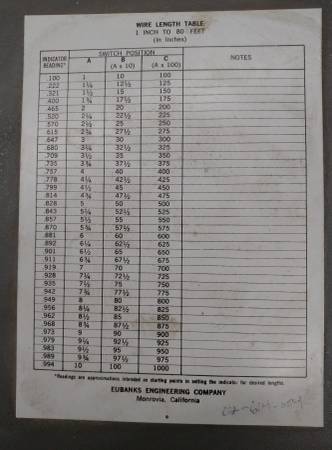 WIRE LENGTH TABLE
1 INCH TO 80 FEET
(in Inches)
INDICATOR READING* SWITCH POSITION NOTES
A B (A x 10) C (A x 100)
.100 1 10 100
.222 1¼ 12½ 125
.321 1½ 15 150
.400 1¾ 17½ 175
.465 2 20 200
.520 2¼ 22½ 225
.570 2½ 25 250
.615 2¾ 27½ 275
.647 3 30 300
.680 3¼ 32½ 325
.709 3½ 35 350
.735 3¾ 37½ 375
.757 4 40 400
.778 4¼ 42½ 425
.799 4½ 45 450
.814 4¾ 47½ 475
.828 5 50 500
.843 5¼ 52½ 525
.857 5½ 55 550
.870 5¾ 57½ 575
.881 6 60 600
.892 6¼ 62½ 625
.901 6½ 65 650
.911 6¾ 67½ 675
.919 7 70 700
.928 7¼ 72½ 725
.935 7½ 75 750
.942 7¾ 77½ 775
.949 8 80 800
.956 8¼ 82½ 825
.962 8½ 85 850
.968 8¾ 87½ 875
.973 9 90 900
.979 9¼ 92½ 925
.983 9½ 95 950
.989 9¾ 97½ 975
.994 10 100 1000
*Readings are approximations intended as starting points in setting the indicator for desired lengths.
EUBANKS ENGINEERING COMPANY
Monrovia, California